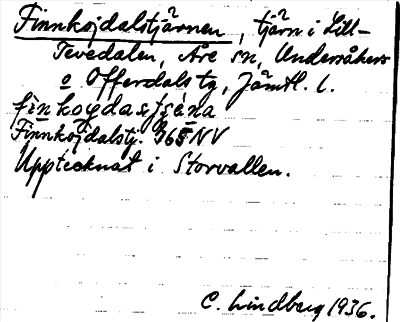 Finnkojdalstjärnen, tjärn i Lill-
Tevedalen, Åre sn, Undersåkers
o Offerdals tg, Jämtl. l.
finkoydasʃæ̀na
Finnkojdalstj. G65NV
Upptecknat i Storvallen.
C. Lindberg 1936.